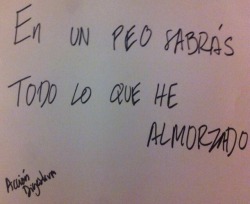 En UN PEO SABRÁS
TODO LO QUE HE
ALMORZADO
Acción